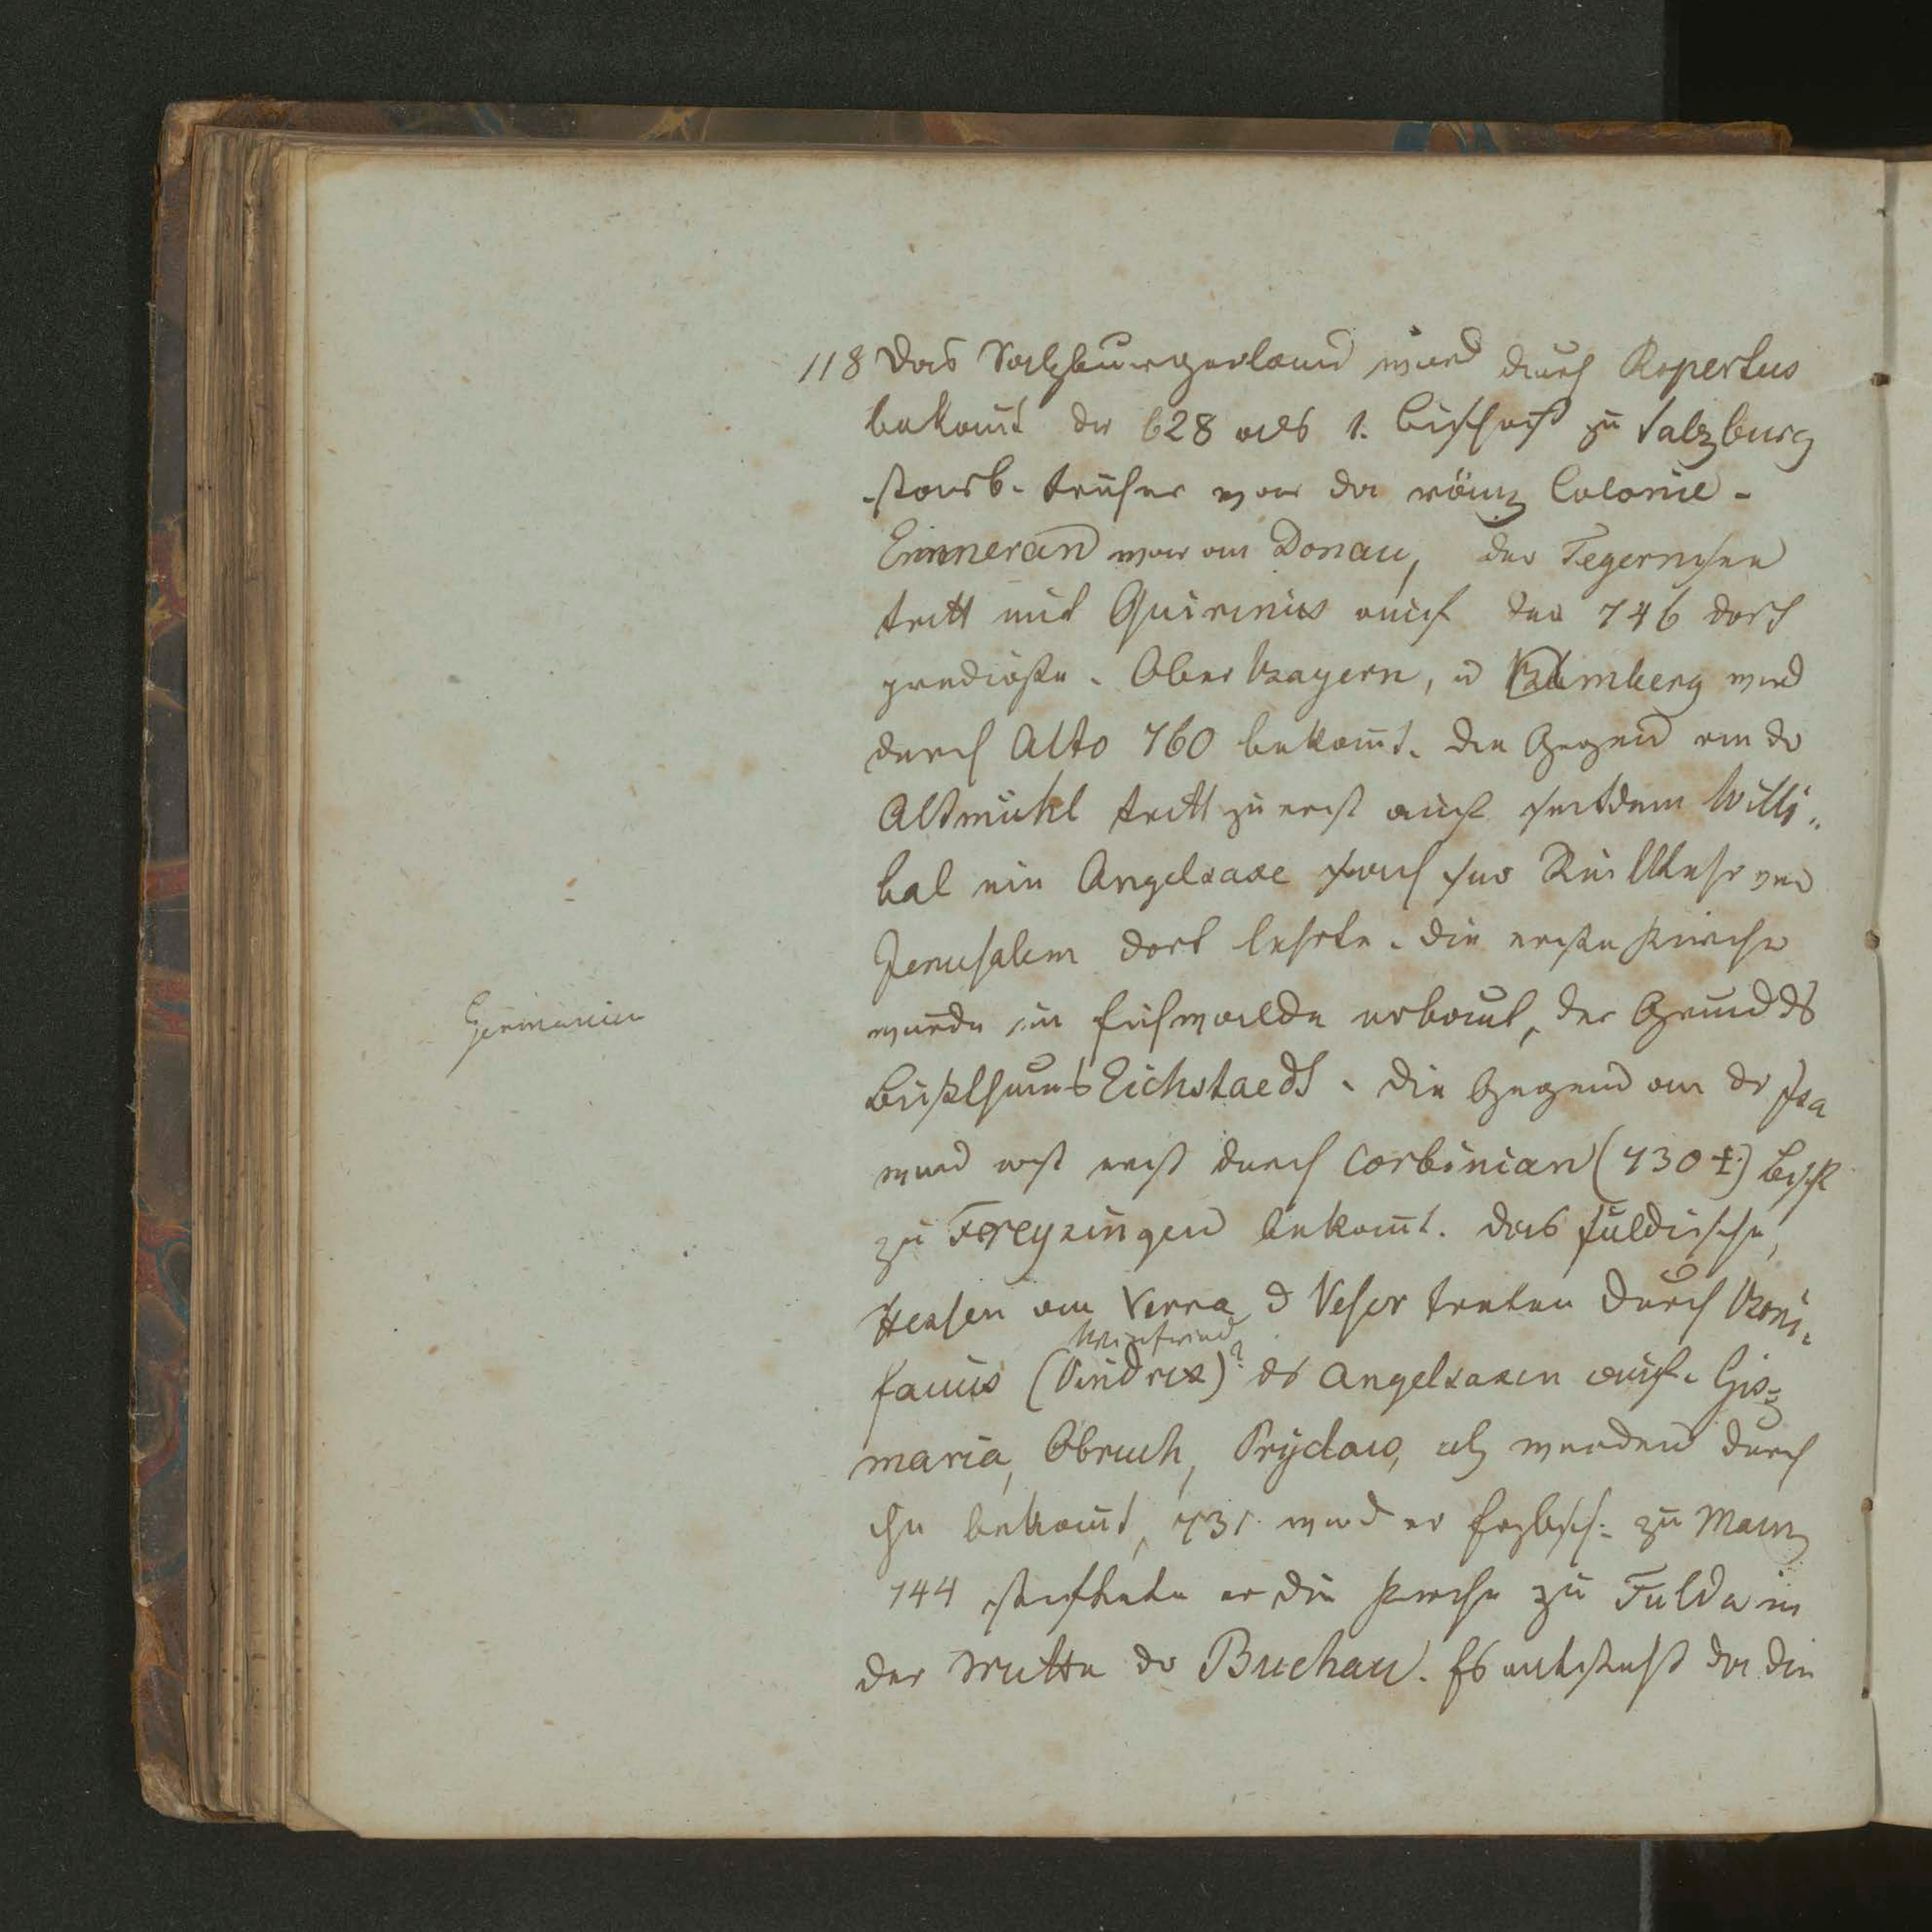 118 Das Salzburgerland wird durch Rupertus
bekan̄t der 628 als 1. Bischof zu Salzburg
starb. früher war da röm Colonie.
Emmeran war an Donau, der Tegernsee
tritt mit Quirinus auf der 746 dort
predigte. Ober bayern, u Bamberg wird
durch Alto 760 bekan̄t. Die Gegend an der
Altmühl tritt zu erst auf seitdem Willi-
bal ein Angelsaxe nach sr Rückkehr von
Jerusalem dort lehrte. Die erste Kirche
Germanien
wurde im Eichwalde erbaut, der Grund ds
Bisthums Eichstaedt. Die Gegend an der Isa
wird erst durch Corbinian (730 †) Bisch
zu Freysingen bekan̄t. Das fuldische,
Hessen am Verra u Veser treten durch Boni-
Winfried
facius (Vindrix)? ds Angelsaxen auf. Gis-
maria, Obruch, Prydau, etz werden durch
ihn bekan̄t, 731 wird er Erzbisch: zu Mainz
744 stiftete er die Kirche zu Fulda in
der Mitte der Buchau. Es entsteht da die